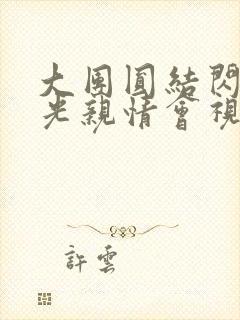 大團圓結閃
光親情會視
許雲